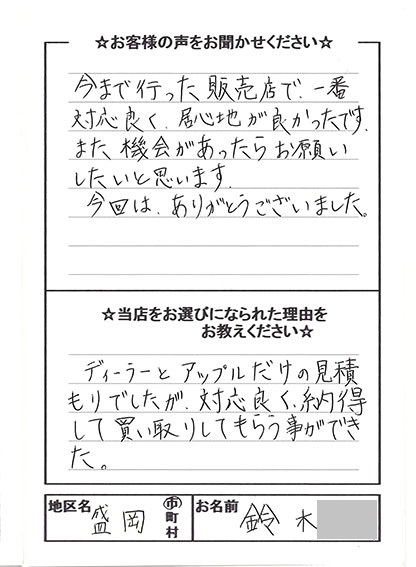 ☆お客様の声をお聞かせください☆
今まで行った販売店で、一番
対応良く、居心地が良かったです。
また機会があったらお願い
したいと思います。
今回は、ありがとうございました。
☆当店をお選びになられた理由を
お教えください☆
ディーラーとアップルだけの見積
もりでしたが、対応良く、納得
して買い取りしてもらう事ができ
た。
地区名 盛岡 市町村 お名前 鈴木